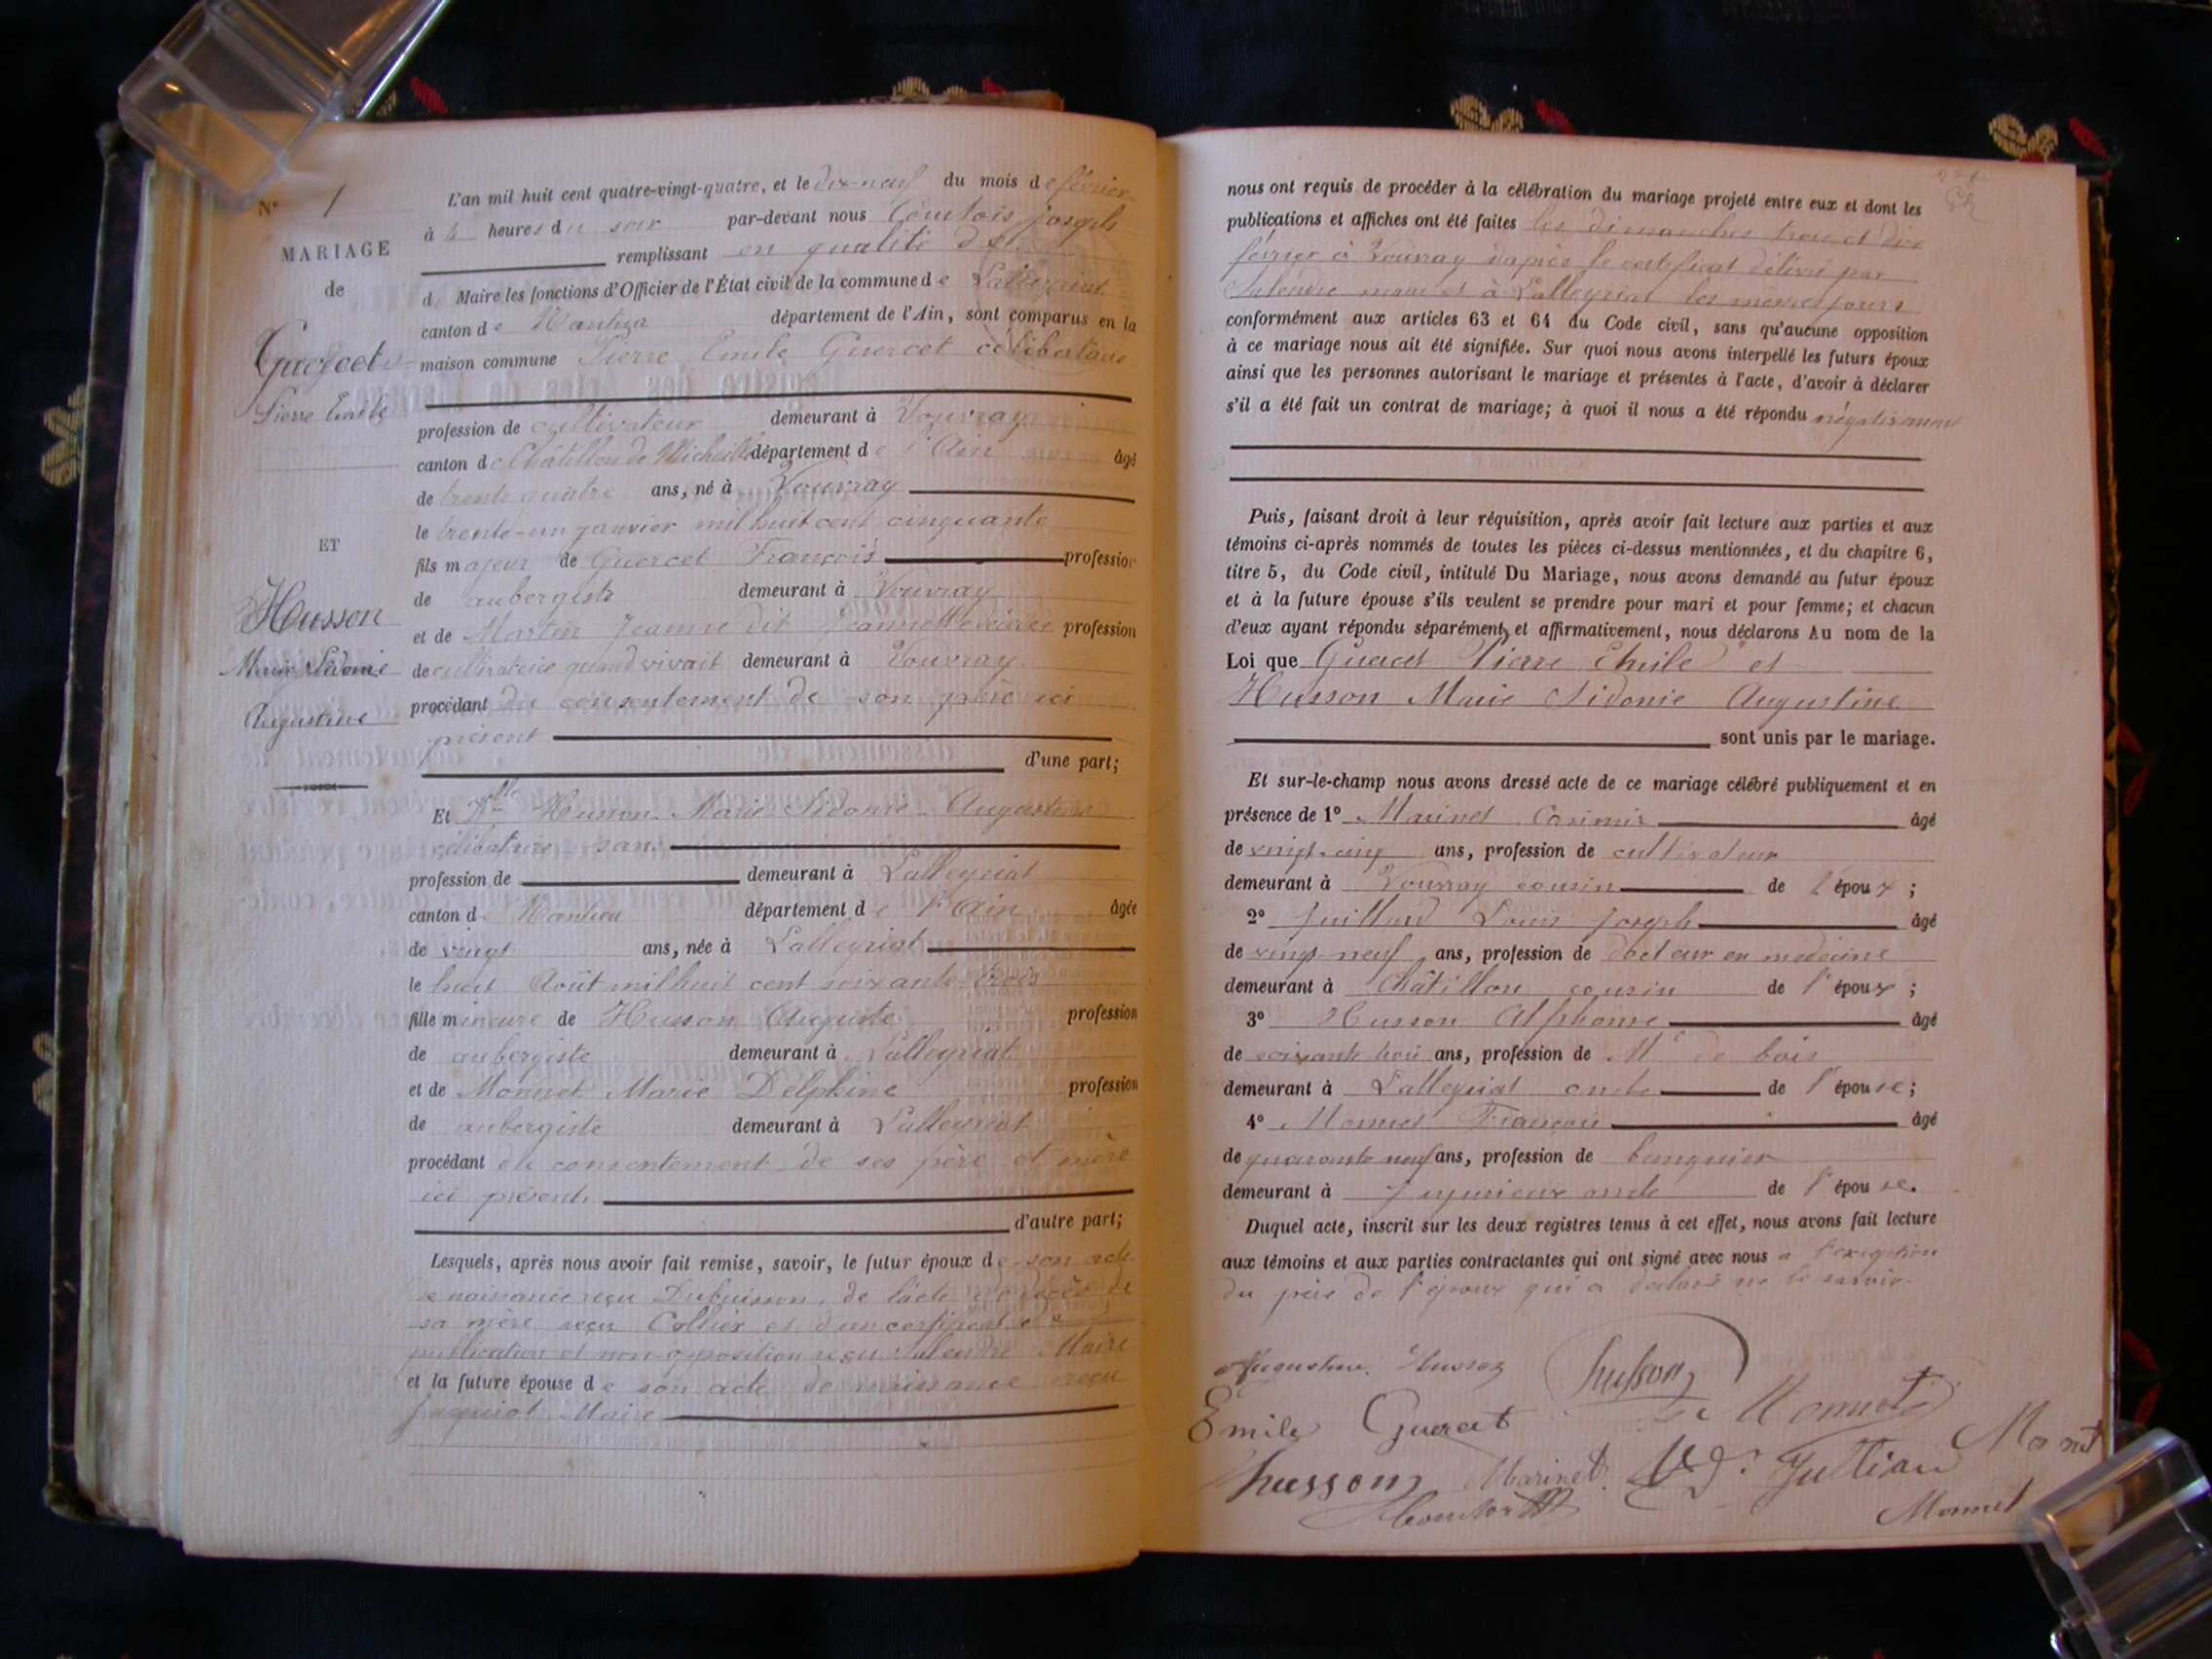 N° 1
MARIAGE
de
Guercet
Pierre Emile
ET
Husson
Marie Sidonie
Augustine
L'an mil huit cent quatre-vingt-quatre, et le dix-neuf du mois de février
à 4 heures du soir par-devant nous Comtois Joseph
remplissant en qualité de
d Maire les fonctions d'Officier de l'État civil de la commune de Lalleyriat
canton de Nantua département de l'Ain, sont comparus en la
maison commune Pierre Emile Guercet célibataire
profession de cultivateur demeurant à Vouvray
canton de Châtillon de Michaille département de l'Ain âgé
de trente quatre ans, né à Vouvray
le trente-un janvier mil huit cent cinquante
fils majeur de Guercet François profession
de aubergiste demeurant à Vouvray
et de Martin Jeanne dit Jeannette décédée profession
de cultivatrice quand vivait demeurant à Vouvray
procédant du consentement de son père ici
présent
d'une part;
Et Dlle Husson Marie Sidonie Augustine
célibataire sans
profession de demeurant à Lalleyriat
canton de Nantua département de l'Ain âgée
de vingt ans, née à Lalleyriat
le huit Août mil huit cent soixante trois
fille mineure de Husson Auguste profession
de aubergiste demeurant à Lalleyriat
et de Monnet Marie Delphine profession
de aubergiste demeurant à Lalleyriat
procédant du consentement de ses père et mère
ici présents
d'autre part;
Lesquels, après nous avoir fait remise, savoir, le futur époux de son acte
de naissance reçu Dubuisson, de l'acte de décès de
sa mère reçu Collier et d'un certificat de
publication et non opposition reçu Maire
et la future épouse de son acte de naissance reçu
Maire
nous ont requis de procéder à la célébration du mariage projeté entre eux et dont les
publications et affiches ont été faites les dimanches trois et dix
février à Vouvray d'après le certificat délivré par
maire et à Lalleyriat les mêmes jours
conformément aux articles 63 et 64 du Code civil, sans qu'aucune opposition
à ce mariage nous ait été signifiée. Sur quoi nous avons interpellé les futurs époux
ainsi que les personnes autorisant le mariage et présentes à l'acte, d'avoir à déclarer
s'il a été fait un contrat de mariage; à quoi il nous a été répondu négativement
Puis, faisant droit à leur réquisition, après avoir fait lecture aux parties et aux
témoins ci-après nommés de toutes les pièces ci-dessus mentionnées, et du chapitre 6,
titre 5, du Code civil, intitulé Du Mariage, nous avons demandé au futur époux
et à la future épouse s'ils veulent se prendre pour mari et pour femme; et chacun
d'eux ayant répondu séparément et affirmativement, nous déclarons Au nom de la
Loi que Guercet Pierre Emile et
Husson Marie Sidonie Augustine
sont unis par le mariage.
Et sur-le-champ nous avons dressé acte de ce mariage célébré publiquement et en
présence de 1° Marinet Casimir âgé
de vingt-cinq ans, profession de cultivateur
demeurant à Vouvray cousin de l'époux;
2° Juilland Louis Joseph âgé
de vingt neuf ans, profession de docteur en médecine
demeurant à Châtillon cousin de l'époux;
3° Husson Alphonse âgé
de soixante trois ans, profession de Md de bois
demeurant à Lalleyriat oncle de l'épouse;
4° Monnet François âgé
de quarante neuf ans, profession de banquier
demeurant à Jujurieux oncle de l'épouse.
Duquel acte, inscrit sur les deux registres tenus à cet effet, nous avons fait lecture
aux témoins et aux parties contractantes qui ont signé avec nous a l'exception
du père de l'époux qui a déclaré ne le savoir.
Augustine Husson husson
Emile Guercet Monnet
husson Marinet Monnet
Monnet